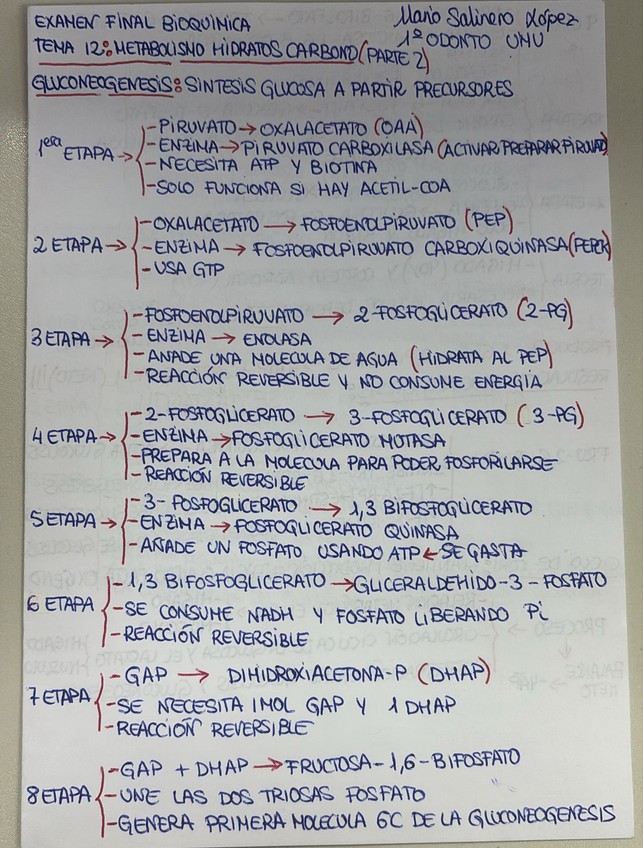 EXAMEN FINAL BIOQUÍMICA
Mario Salinero López
TEMA 12: METABOLISMO HIDRATOS CARBONO (PARTE 2)
1º ODONTO UMU
GLUCONEOGENESIS: SINTESIS GLUCOSA A PARTIR PRECURSORES
1era ETAPA →
- PIRUVATO → OXALACETATO (OAA)
- ENZIMA → PIRUVATO CARBOXILASA (ACTIVAR/PREPARAR PIRUVATO)
- NECESITA ATP Y BIOTINA
- SOLO FUNCIONA SI HAY ACETIL-COA
2 ETAPA →
- OXALACETATO → FOSFOENOLPIRUVATO (PEP)
- ENZIMA → FOSFOENOLPIRUVATO CARBOXIQUINASA (PEPCK)
- USA GTP
3 ETAPA →
- FOSFOENOLPIRUVATO → 2-FOSFOGLICERATO (2-PG)
- ENZIMA → ENOLASA
- AÑADE UNA MOLECULA DE AGUA (HIDRATA AL PEP)
- REACCIÓN REVERSIBLE Y NO CONSUME ENERGÍA
4 ETAPA →
- 2-FOSFOGLICERATO → 3-FOSFOGLICERATO (3-PG)
- ENZIMA → FOSFOGLICERATO MUTASA
- PREPARA A LA MOLECULA PARA PODER FOSFORILARSE
- REACCIÓN REVERSIBLE
5 ETAPA →
- 3-FOSFOGLICERATO → 1,3 BIFOSFOGLICERATO
- ENZIMA → FOSFOGLICERATO QUINASA
- AÑADE UN FOSFATO USANDO ATP ← SE GASTA
6 ETAPA
- 1,3 BIFOSFOGLICERATO → GLICERALDEHIDO-3-FOSFATO
- SE CONSUME NADH Y FOSFATO LIBERANDO Pi
- REACCIÓN REVERSIBLE
7 ETAPA
- GAP → DIHIDROXIACETONA-P (DHAP)
- SE NECESITA 1MOL GAP Y 1 DHAP
- REACCIÓN REVERSIBLE
8 ETAPA
- GAP + DHAP → FRUCTOSA-1,6-BIFOSFATO
- UNE LAS DOS TRIOSAS FOSFATO
- GENERA PRIMERA MOLECULA 6C DE LA GLUCONEOGENESIS